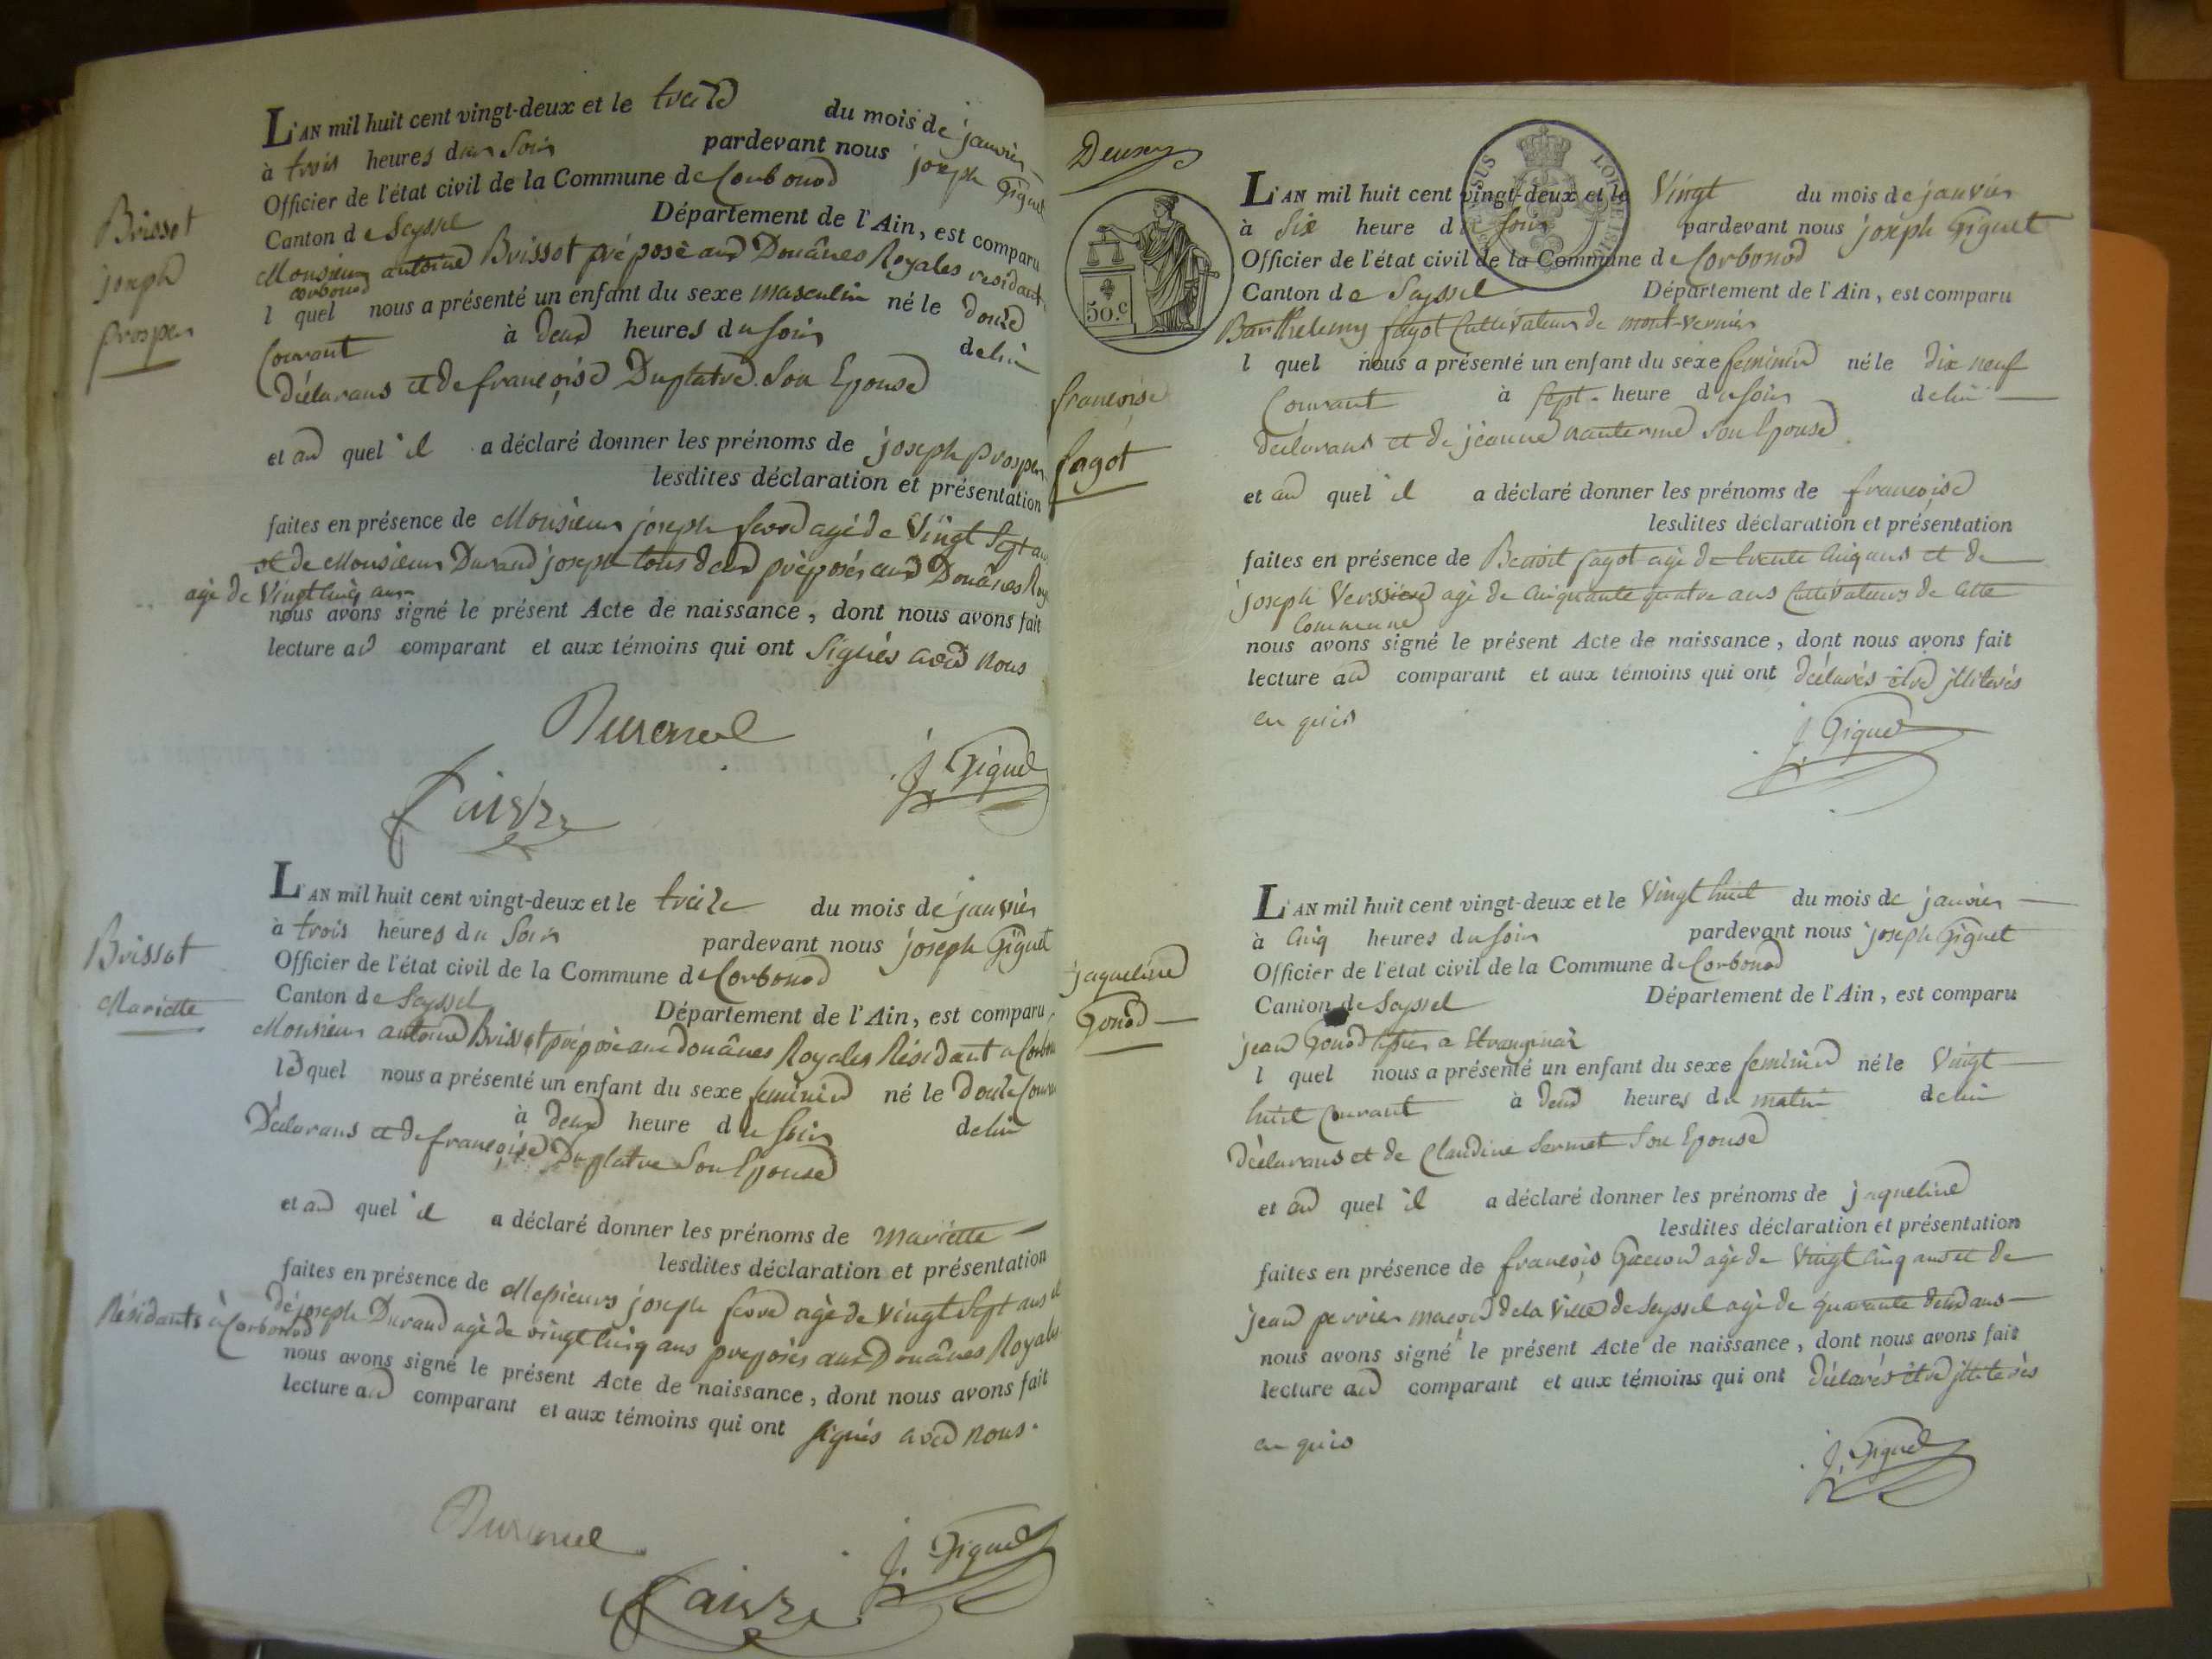 Brissot
joseph
prosper
L'AN mil huit cent vingt-deux et le treize du mois de janvier
à trois heures du soir pardevant nous joseph Giguet
Officier de l'état civil de la Commune de Corbonod
Canton de Seyssel Département de l'Ain, est comparu
Monsieur antoine Brissot préposé aux Douânes Royales residant
corbonod
l quel nous a présenté un enfant du sexe masculin né le douze
Courant à deux heures du soir de lui
Déclarans et de françoise Duplatre son Epouse
et au quel il a déclaré donner les prénoms de joseph prosper
lesdites déclaration et présentation
faites en présence de Monsieur joseph agé de Vingt Sept ans
et de Monsieur Durand joseph tous deux préposés aux Douânes Roy
agé de Vingt Cinq ans
nous avons signé le présent Acte de naissance, dont nous avons fait
lecture au comparant et aux témoins qui ont Signés avec nous
J. Giguet
Brissot
Mariette
L'AN mil huit cent vingt-deux et le treize du mois de janvier
à trois heures du Soir pardevant nous joseph Giguet
Officier de l'état civil de la Commune de Corbonod
Canton de Seyssel Département de l'Ain, est comparu
Monsieur antoine Brissot préposé aux douânes Royales Résidant a Corbon
le quel nous a présenté un enfant du sexe feminin né le douze Courant
à deux heure du soir de lui
Déclarans et de françoise Duplatre son Epouse
et au quel il a déclaré donner les prénoms de mariette
lesdites déclaration et présentation
faites en présence de Messieurs joseph agé de Vingt Sept ans et
de joseph Durand agé de vingt Cinq ans preposés aux Douânes Royales
Résidants à Corbonod
nous avons signé le présent Acte de naissance, dont nous avons fait
lecture au comparant et aux témoins qui ont signés avec nous.
J. Giguet
Deux
50.c
françoise
fagot
L'AN mil huit cent vingt-deux et le Vingt du mois de janvier
à Six heure du soir pardevant nous joseph Giguet
Officier de l'état civil de la Commune de Corbonod
Canton de Seyssel Département de l'Ain, est comparu
Barthelemy fagot Cultivateur de mont-vernier
l quel nous a présenté un enfant du sexe feminin né le dix neuf
Courant à sept heure du soir de lui
déclarans et de jeanne nanterme son Epouse
et au quel il a déclaré donner les prénoms de françoise
lesdites déclaration et présentation
faites en présence de Benoit fagot agé de trente Cinq ans et de
joseph agé de Cinquante quatre ans Cultivateurs de Cette
Commune
nous avons signé le présent Acte de naissance, dont nous avons fait
lecture au comparant et aux témoins qui ont déclarés être illiterés
en quis
J. Giguet
jaqueline
Gonod
L'AN mil huit cent vingt-deux et le Vingt huit du mois de janvier
à Cinq heures du soir pardevant nous joseph Giguet
Officier de l'état civil de la Commune de Corbonod
Canton de Seyssel Département de l'Ain, est comparu
jean Gonod a
l quel nous a présenté un enfant du sexe feminin né le Vingt
huit Courant à deux heures du matin de lui
déclarans et de Claudine Sermet Son Epouse
et au quel il a déclaré donner les prénoms de jaqueline
lesdites déclaration et présentation
faites en présence de françois agé de Vingt Cinq ans et de
jean perrier maçons de la Ville de Seyssel agé de quarante deux ans
nous avons signé le présent Acte de naissance, dont nous avons fait
lecture au comparant et aux témoins qui ont déclarés être illiterés
en quis
J. Giguet